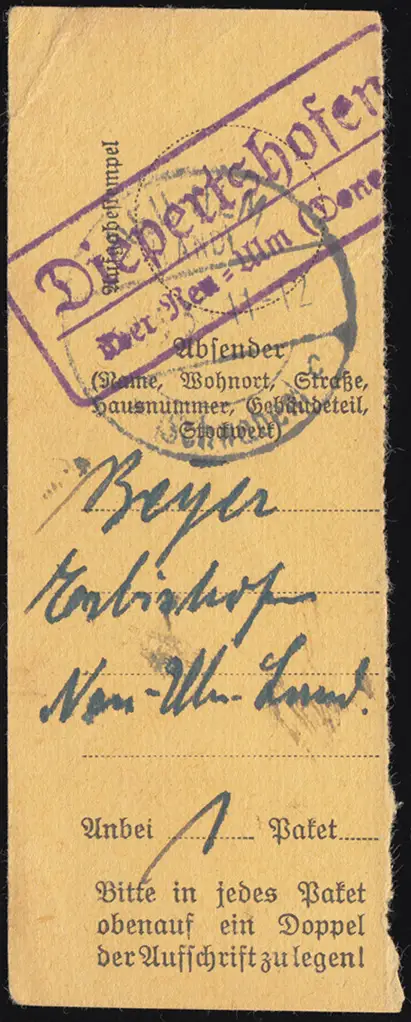 Aufgabestempel
Diepertshofen
über Neu-Ulm (Dona
11-12
c
Absender
(Name, Wohnort, Straße,
Hausnummer, Gebäudeteil,
Stockwerk)
Beyer
Erbishofen
Neu-Ulm-Land.
Anbei 1 Paket
Bitte in jedes Paket
obenauf ein Doppel
der Aufschrift zu legen!